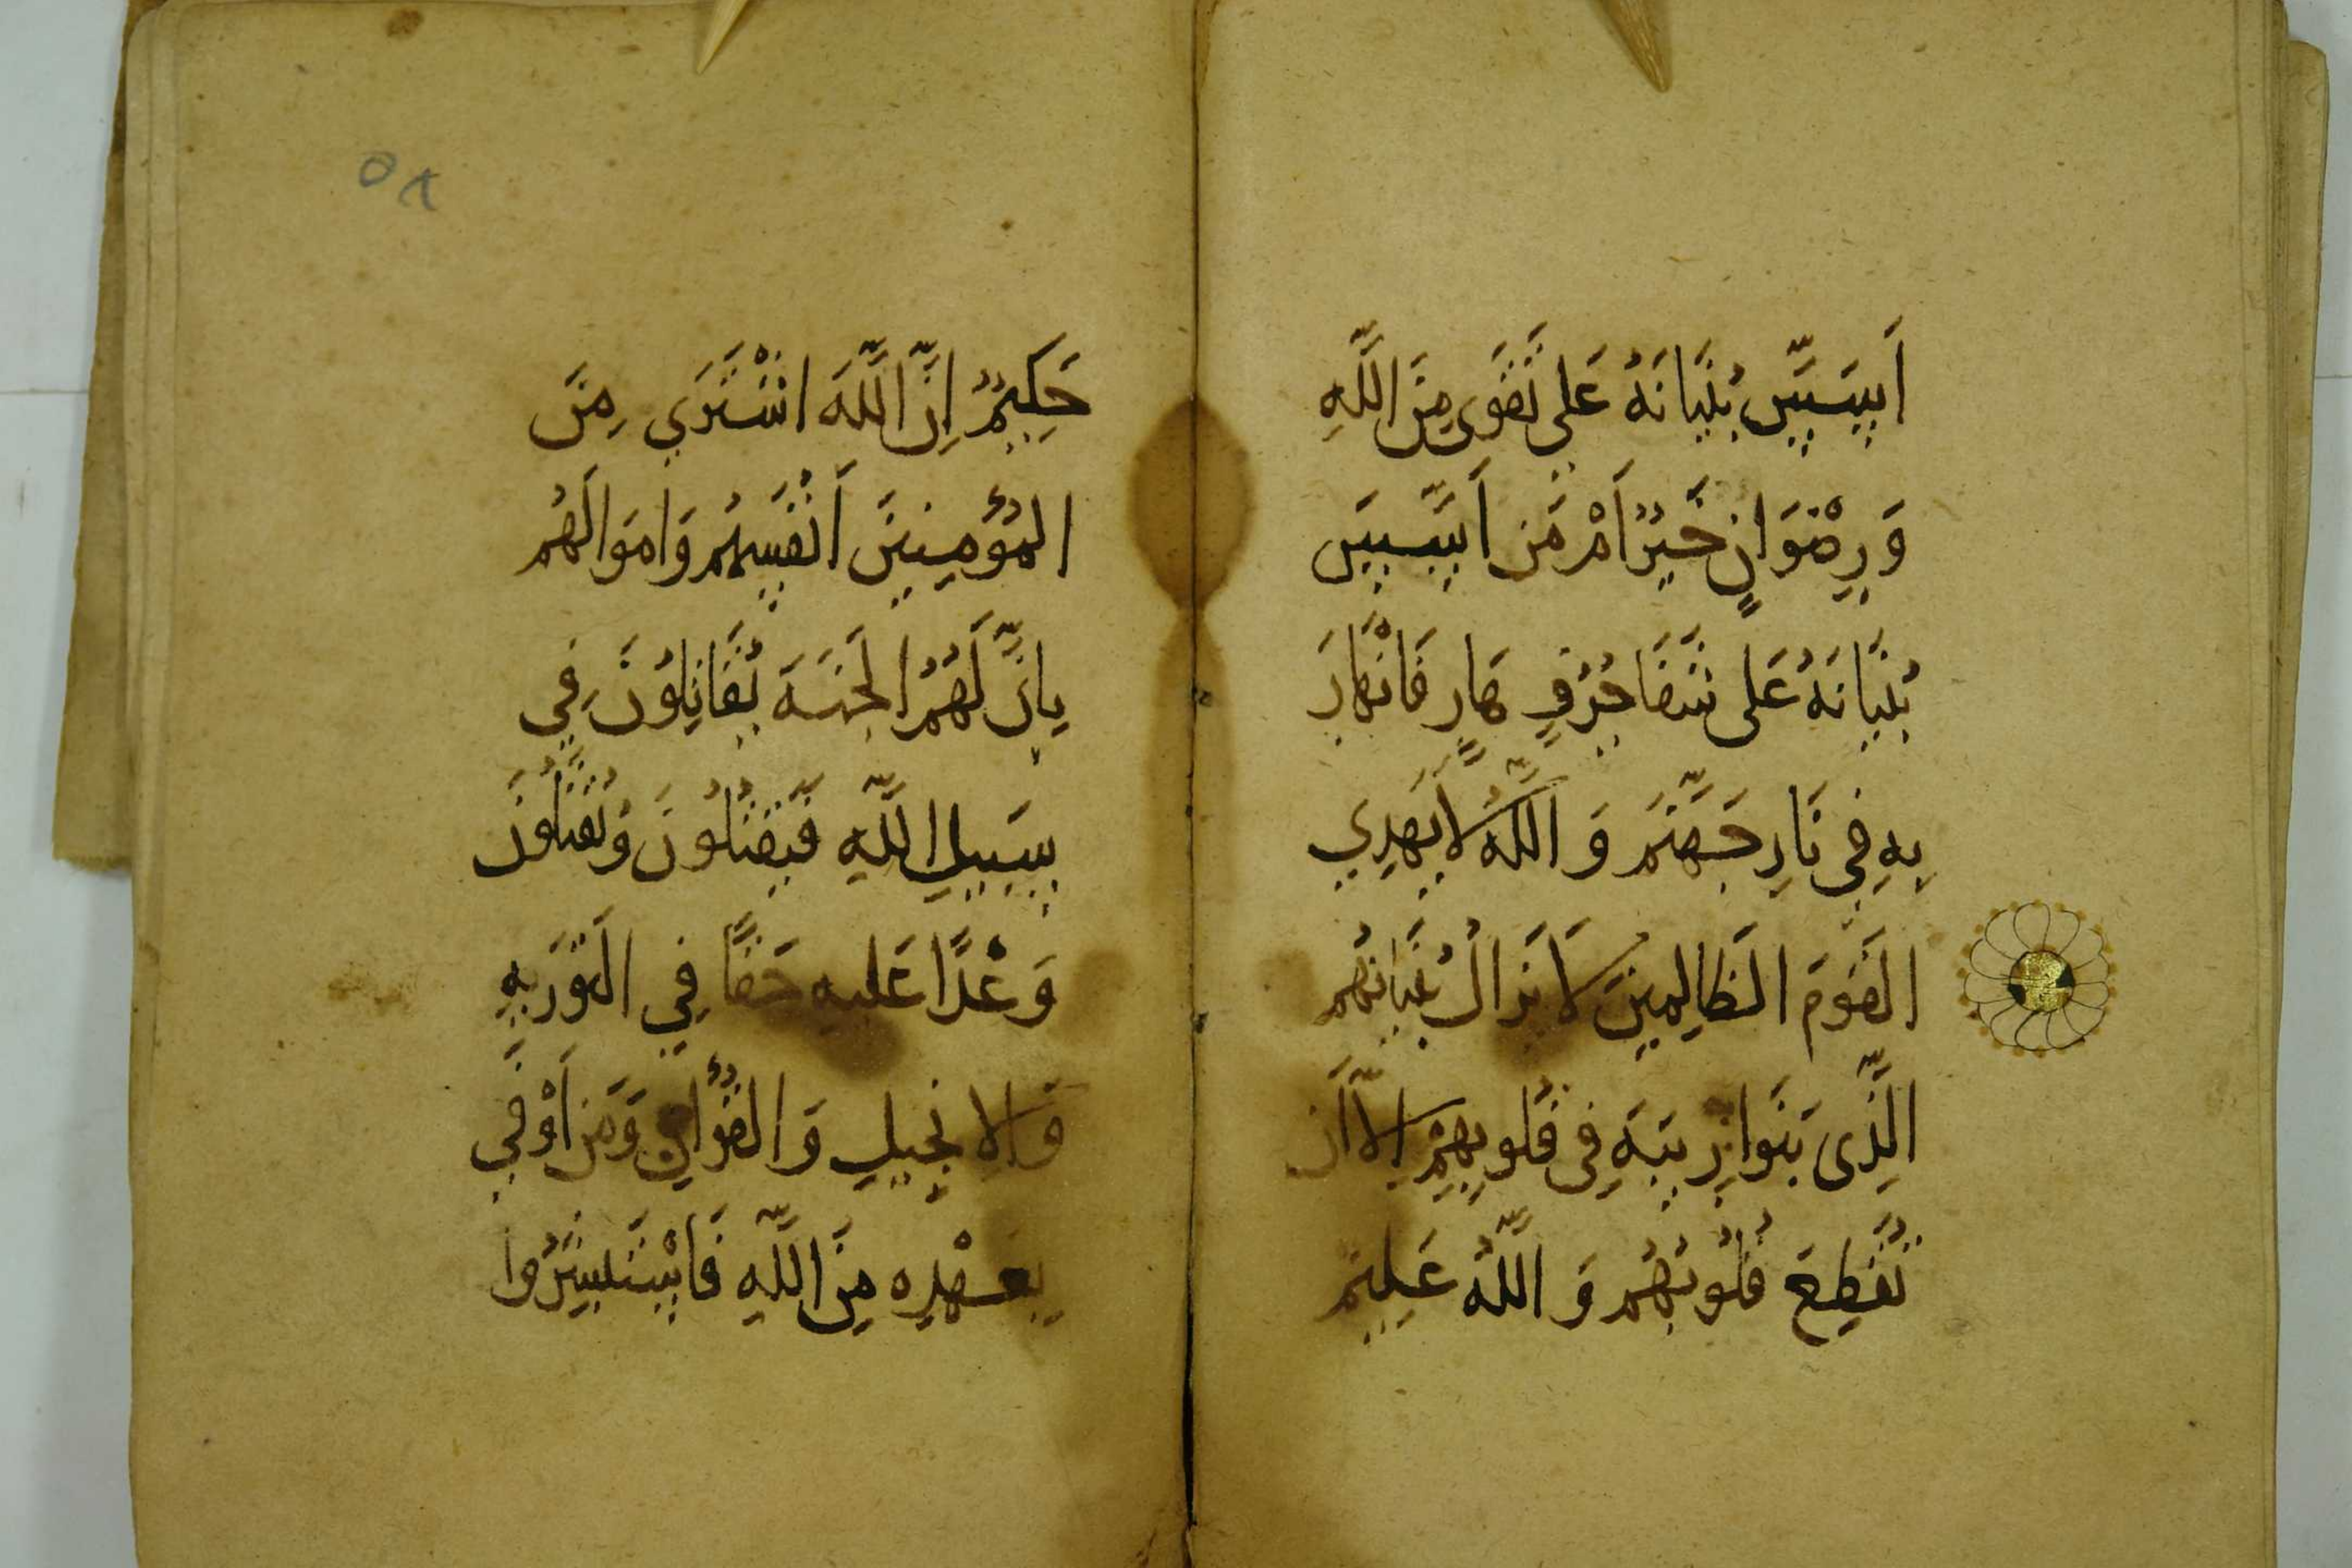 اَسَّسَ بُنيَانَهُ عَلى تَقوَى مِنَ اللَّهِ
وَرِضْوَانٍ خَيرٌ اَمْ مَن اَسَّسَ
بُنيَانَهُ عَلى شَفَا جُرُفٍ هَارٍ فَانْهَارَ
بِهِ فِي نَارِ جَهَنَّمَ وَاللَّهُ لَا يَهدِي
القَومَ الظَالِمينَ لَا يَزَالُ بُنيَانُهُم
الَّذِى بَنَوا رِيبَةً فِى قُلوبِهِمْ اِلَّا اَن
تُقَطِعَ قُلُوبُهُم وَاللَّهُ عَلِيمٌ
حَكِيمٌ اِنَّ اللَّهَ اشْتَرَي مِنَ
المُؤمِنِينَ اَنْفُسِهُم وَاموَالَهُم
بِاَنَّ لَهُمُ الجَنَةَ يُقَاتِلُونَ فِي
سَبِيلِ اللَّهِ فَيَقتُلُونَ وَيُقتَلُونَ
وَعْدًا عَلَيهِ حَقًا فِي التَورَيةِ
وَالاِنجِيلِ وَالقُرْاٰنِ وَمَن اَوْفَي
بِعَهْدِه مِنَ اللَّهِ فَاسْتَبشِرُوا
٥٨